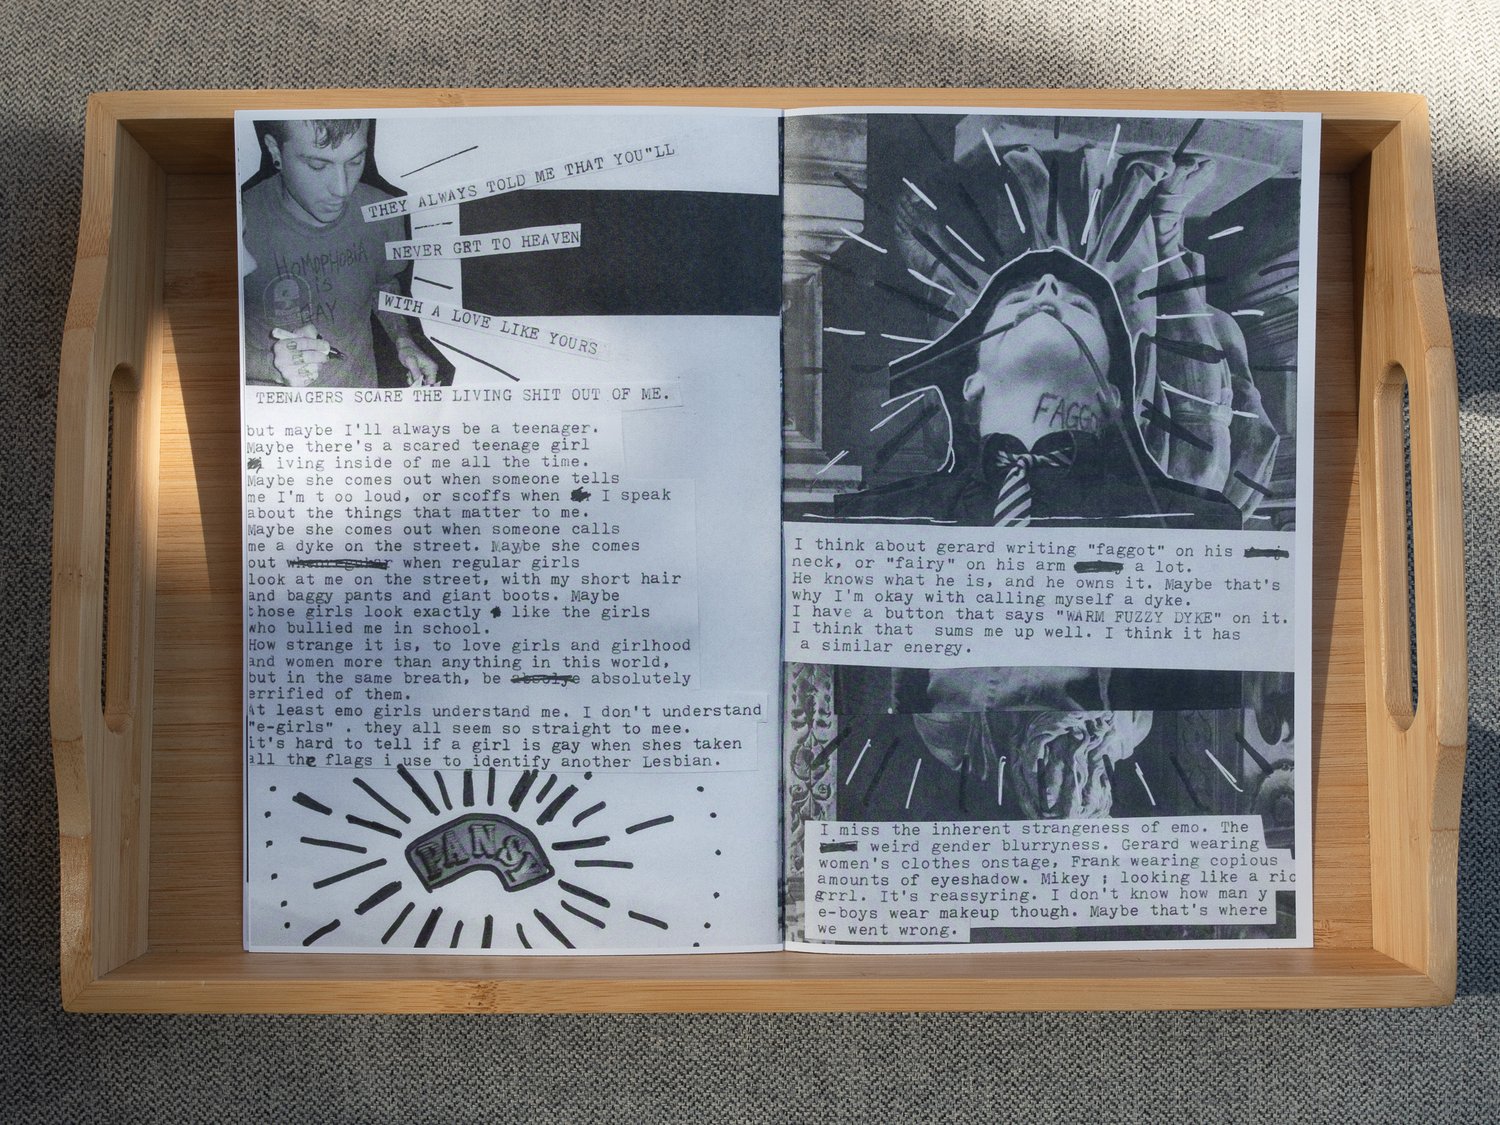 THEY ALWAYS TOLD ME THAT YOU"LL
NEVER GET TO HEAVEN
WITH A LOVE LIKE YOURS
HOMOPHOBIA
IS
GAY
TEENAGERS SCARE THE LIVING SHIT OUT OF ME.
but maybe I'll always be a teenager.
Maybe there's a scared teenage girl
iving inside of me all the time.
Maybe she comes out when someone tells
me I'm t oo loud, or scoffs when I speak
about the things that matter to me.
Maybe she comes out when someone calls
me a dyke on the street. Maybe she comes
out when regular when regular girls
look at me on the street, with my short hair
and baggy pants and giant boots. Maybe
those girls look exactly like the girls
who bullied me in school.
How strange it is, to love girls and girlhood
and women more than anything in this world,
but in the same breath, be absolutely
errified of them.
At least emo girls understand me. I don't understand
"e-girls" . they all seem so straight to mee.
it's hard to tell if a girl is gay when shes taken
all the flags i use to identify another Lesbian.
PANSY
FAGGO
I think about gerard writing "faggot" on his
neck, or "fairy" on his arm a lot.
He knows what he is, and he owns it. Maybe that's
why I'm okay with calling myself a dyke.
I have a button that says "WARM FUZZY DYKE" on it.
I think that sums me up well. I think it has
a similar energy.
I miss the inherent strangeness of emo. The
weird gender blurryness. Gerard wearing
women's clothes onstage, Frank wearing copious
amounts of eyeshadow. Mikey ; looking like a rio
grrl. It's reassyring. I don't know how man y
e-boys wear makeup though. Maybe that's where
we went wrong.